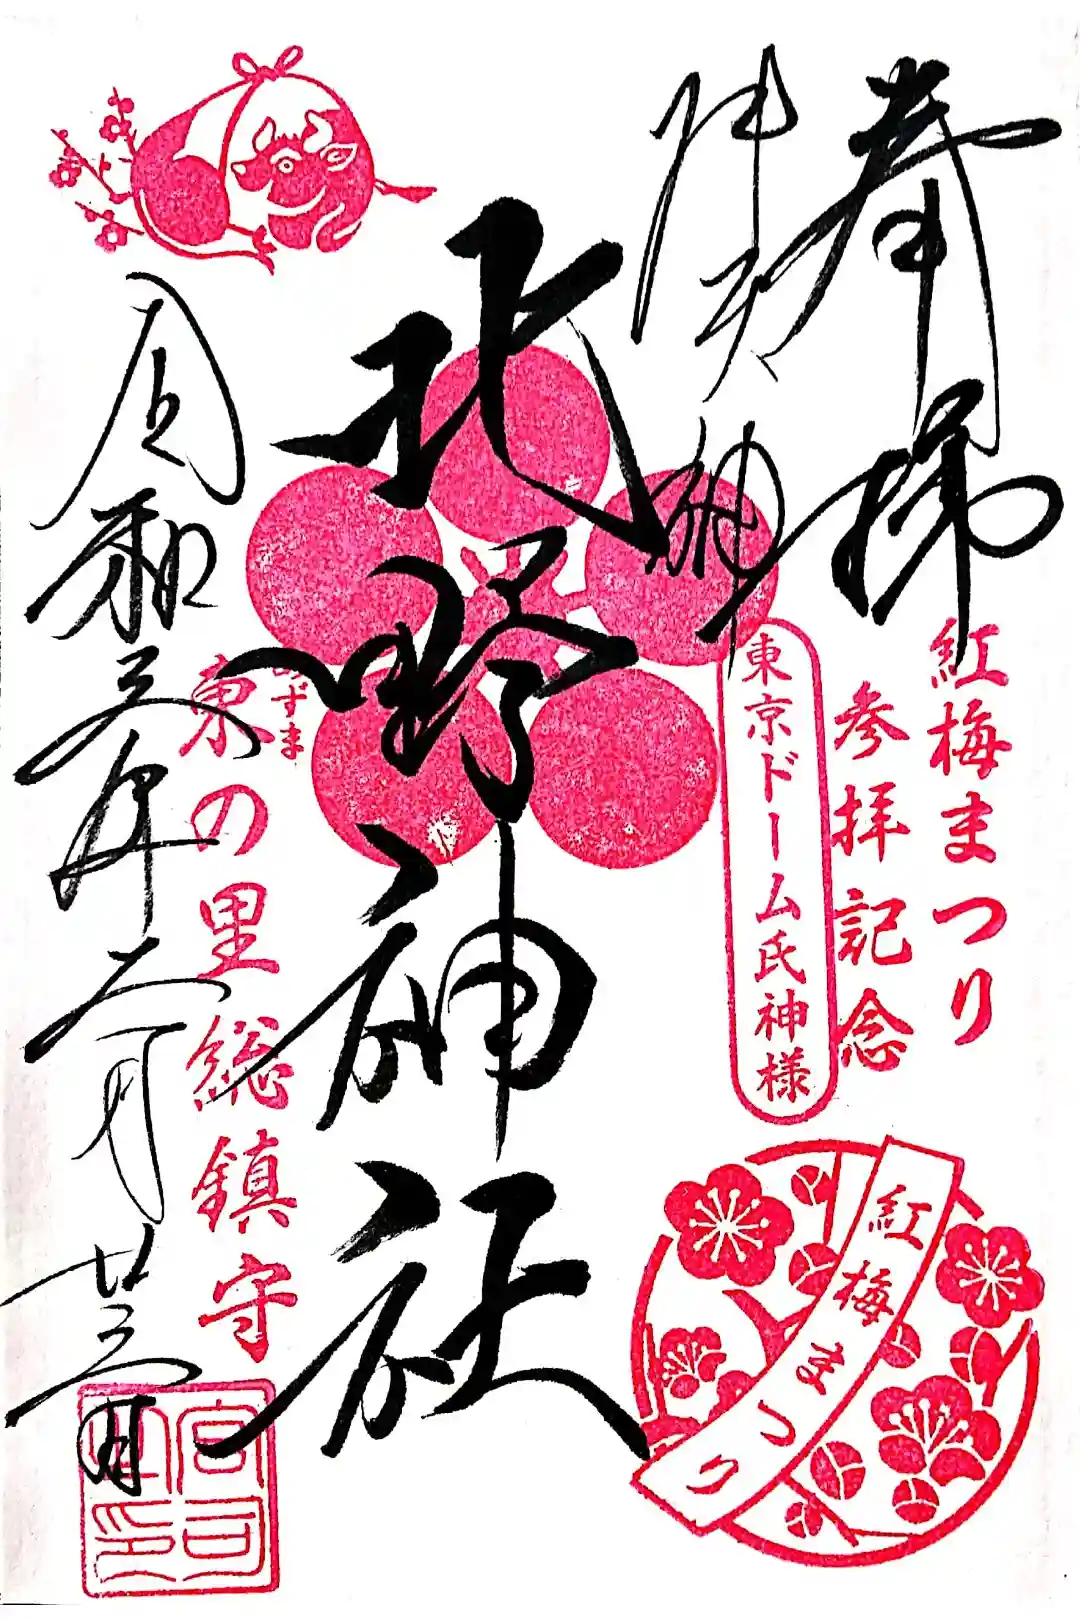 奉拝
紅梅まつり
参拝記念
牛天神
東京ドーム氏神様
紅梅まつり
北野神社
あずま
東の里総鎮守
令和三年二月廿三日
宮司
之印